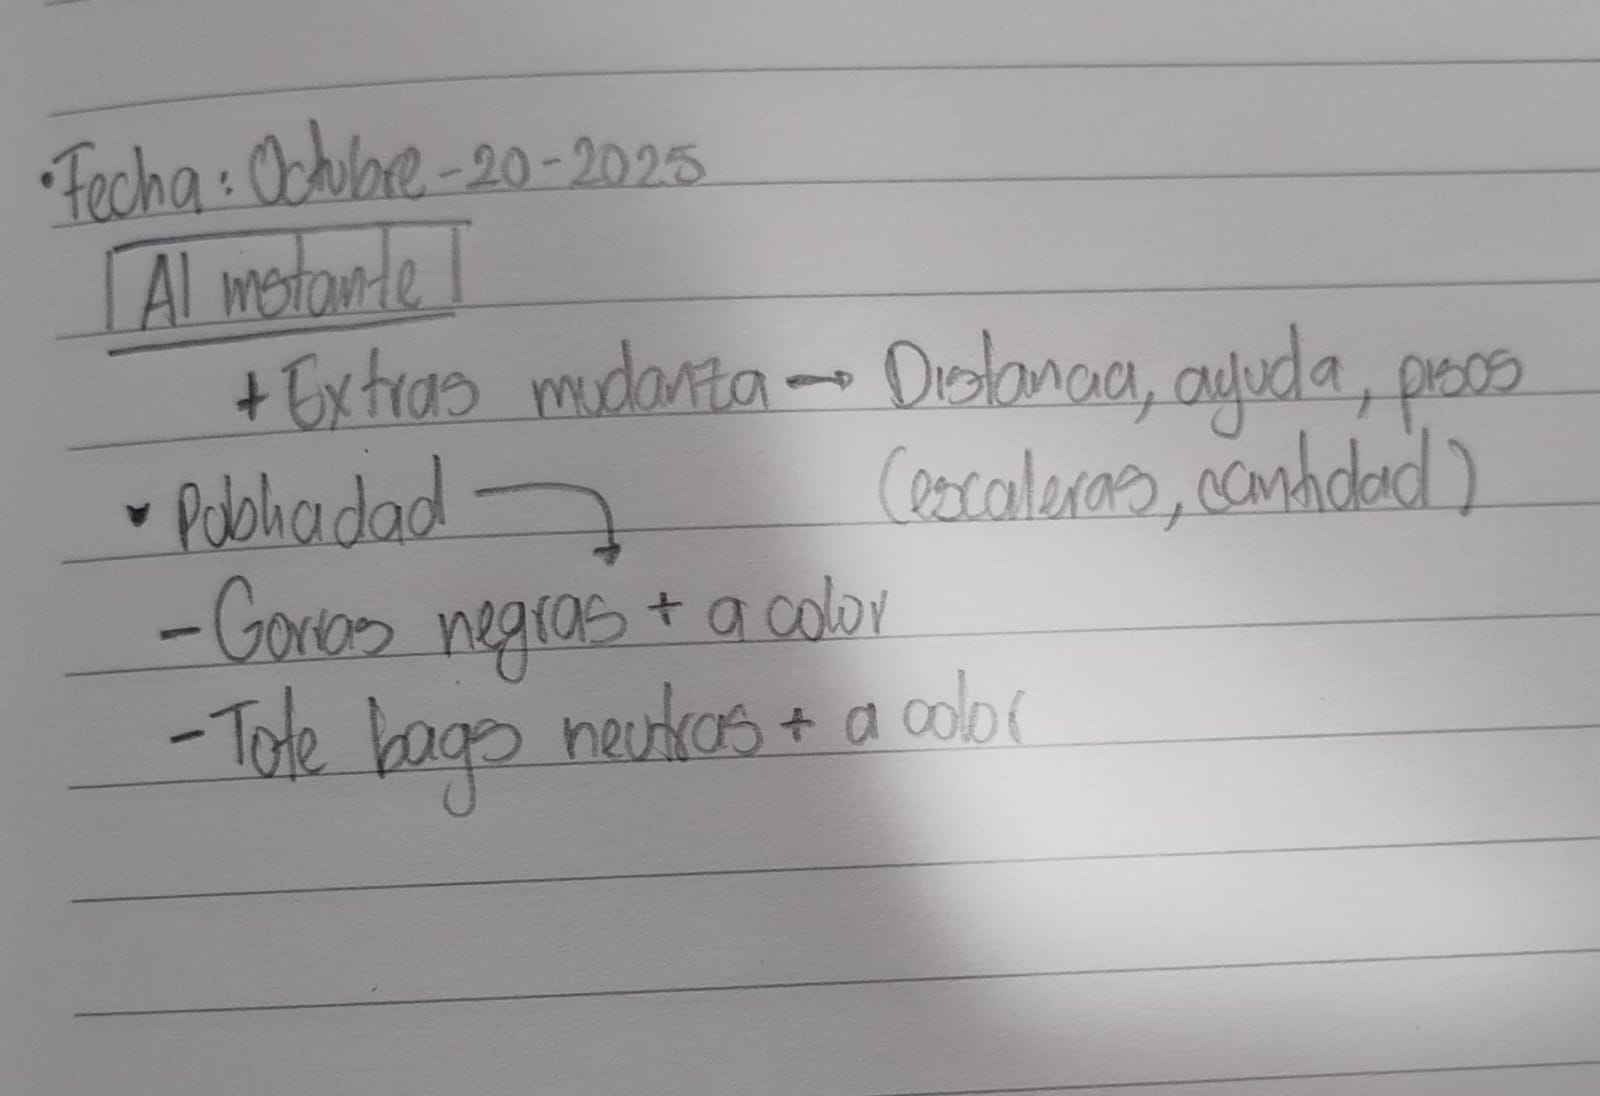 • Fecha: Octubre-20-2025
Al instante
+ Extras mudanza → Distancia, ayuda, pisos
(escaleras, cantidad)
• Publicidad
- Gorras negras + a color
- Tote bags neutras + a color